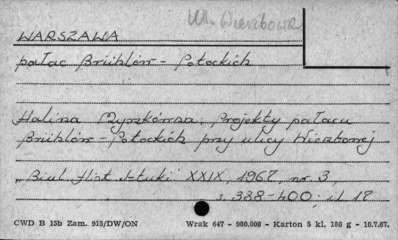 Ul. Wierzbowa
WARSZAWA
pałac Brühlów - Potockich
Halina Pyszkówna: Projekty pałacu
Brühlów-Potockich przy ulicy Wierzbowej
"Biul. Hist. Sztuki" XXIX, 1967, nr 3,
s. 388-400, il. 17
CWD B 15b Zam. 915/DW/ON Wrak 647 - 980.000 - Karton 5 kl. 180 g - 10.7.67.